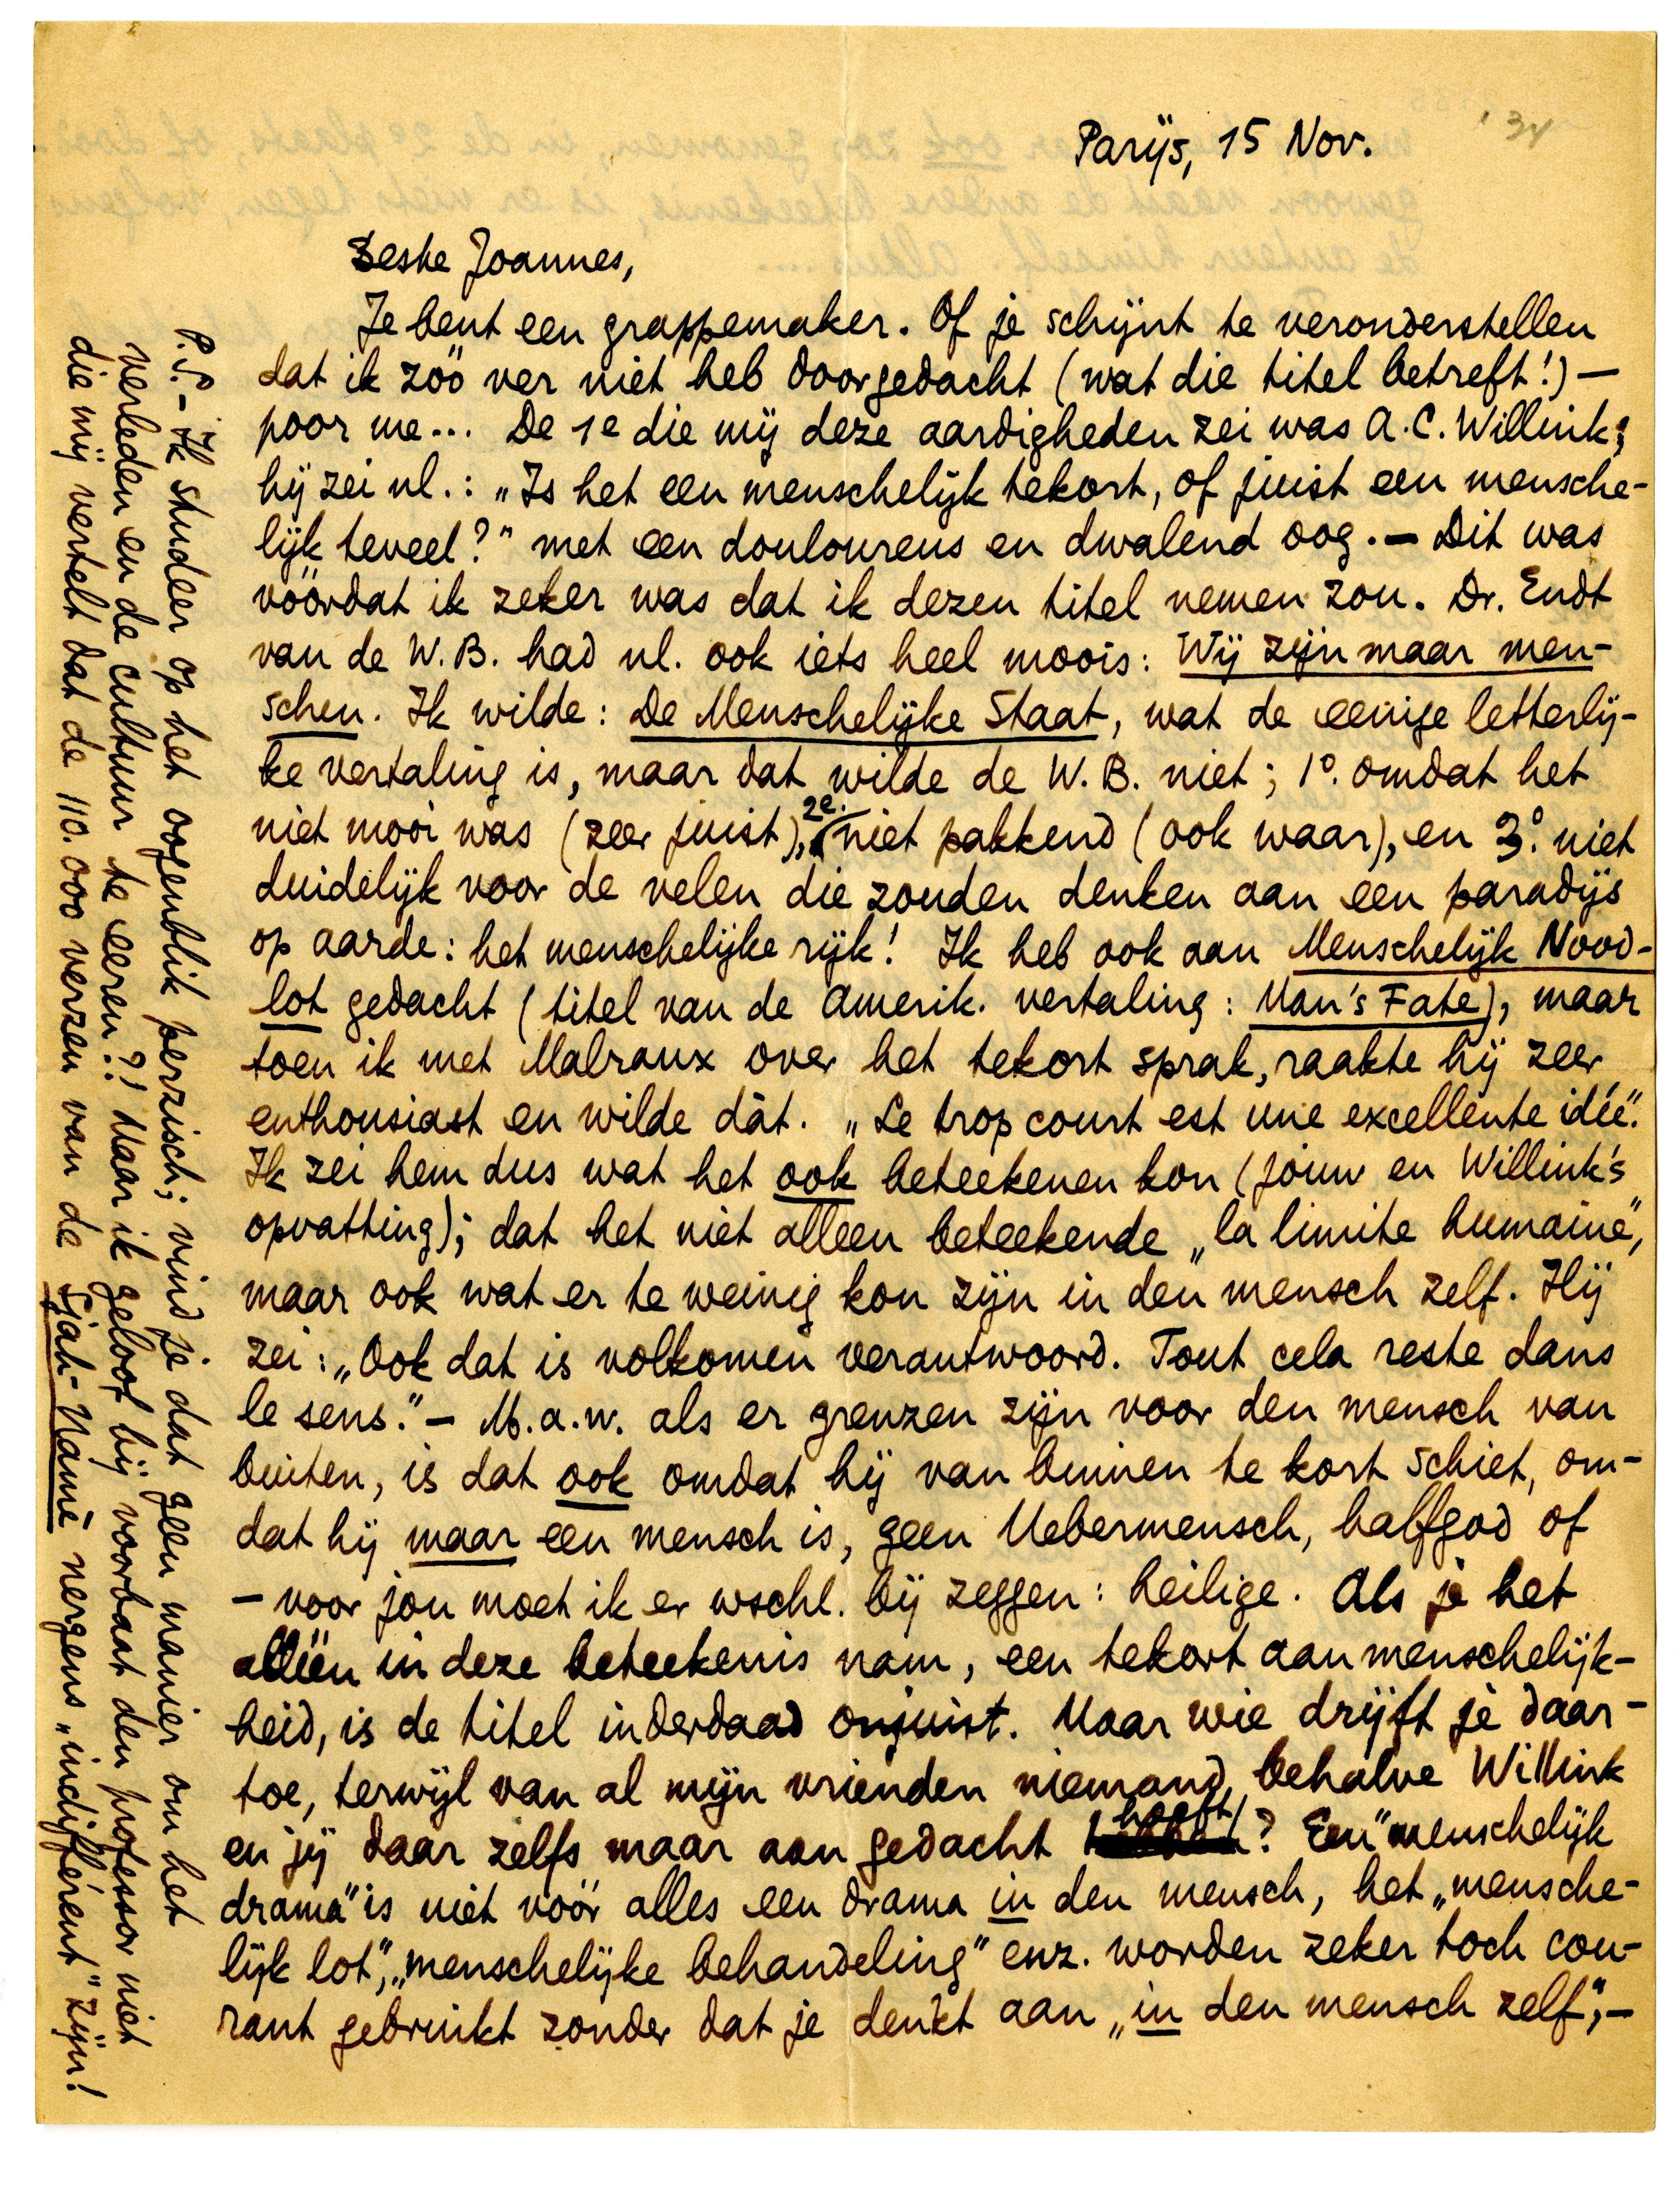 Parijs, 15 Nov.
'34
Beske Joannes,
Je bent een grappemaker. Of je schijnt te veronderstellen
dat ik zóó ver niet heb doorgedacht (wat die titel betreft!) —
poor me... De 1e die mij deze aardigheden zei was A.C. Willink;
hij zei nl.: „Is het een menschelijk tekort, of juist een mensche-
lijk teveel?" met een douloureus en dwalend oog. — Dit was
vóórdat ik zeker was dat ik dezen titel nemen zou. Dr. Endt
van de W.B. had nl. ook iets heel moois: Wij zijn maar men-
schen. Ik wilde: De Menschelijke Staat, wat de eenige letterlij-
ke vertaling is, maar dat wilde de W.B. niet; 1°. omdat het
niet mooi was (zeer juist), 2e. niet pakkend (ook waar), en 3° niet
duidelijk voor de velen die zouden denken aan een paradijs
op aarde: het menschelijke rijk! Ik heb ook aan Menschelijk Nood-
lot gedacht (titel van de Amerik. vertaling: Man's Fate), maar
toen ik met Malraux over het tekort sprak, raakte hij zeer
enthousiast en wilde dàt. „Le trop court est une excellente idée".
Ik zei hem dus wat het ook beteekenen kon (jouw en Willink's
opvatting); dat het niet alleen beteekende „la limite humaine",
maar ook wat er te weinig kon zijn in den mensch zelf. Hij
zei: „Ook dat is volkomen verantwoord. Tout cela reste dans
le sens." — M.a.w. als er grenzen zijn voor den mensch van
buiten, is dat ook omdat hij van binnen te kort schiet, om-
dat hij maar een mensch is, geen Uebermensch, halfgod of
— voor jou moet ik er wschl. bij zeggen: heilige. Als je het
alléén in deze beteekenis nam, een tekort aan menschelijk-
heid, is de titel inderdaad onjuist. Maar wie drijft je daar-
toe, terwijl van al mijn vrienden niemand, behalve Willink
en jij daar zelfs maar aan gedacht heeft? Een "menschelijk
drama" is niet vóór alles een drama in den mensch, het „mensche-
lijk lot", „menschelijke behandeling" enz. worden zeker toch cou-
rant gebruikt zonder dat je denkt aan „in den mensch zelf"; —
P.S. — Ik studeer op het oogenblik perzisch; vind je dat geen manier om het
verleden en de cultuur te eeren?! Maar ik geloof bij voorbaat den professor niet
die mij vertelt dat de 110.000 verzen van de Sjah-Namé nergens „indifférent" zijn!